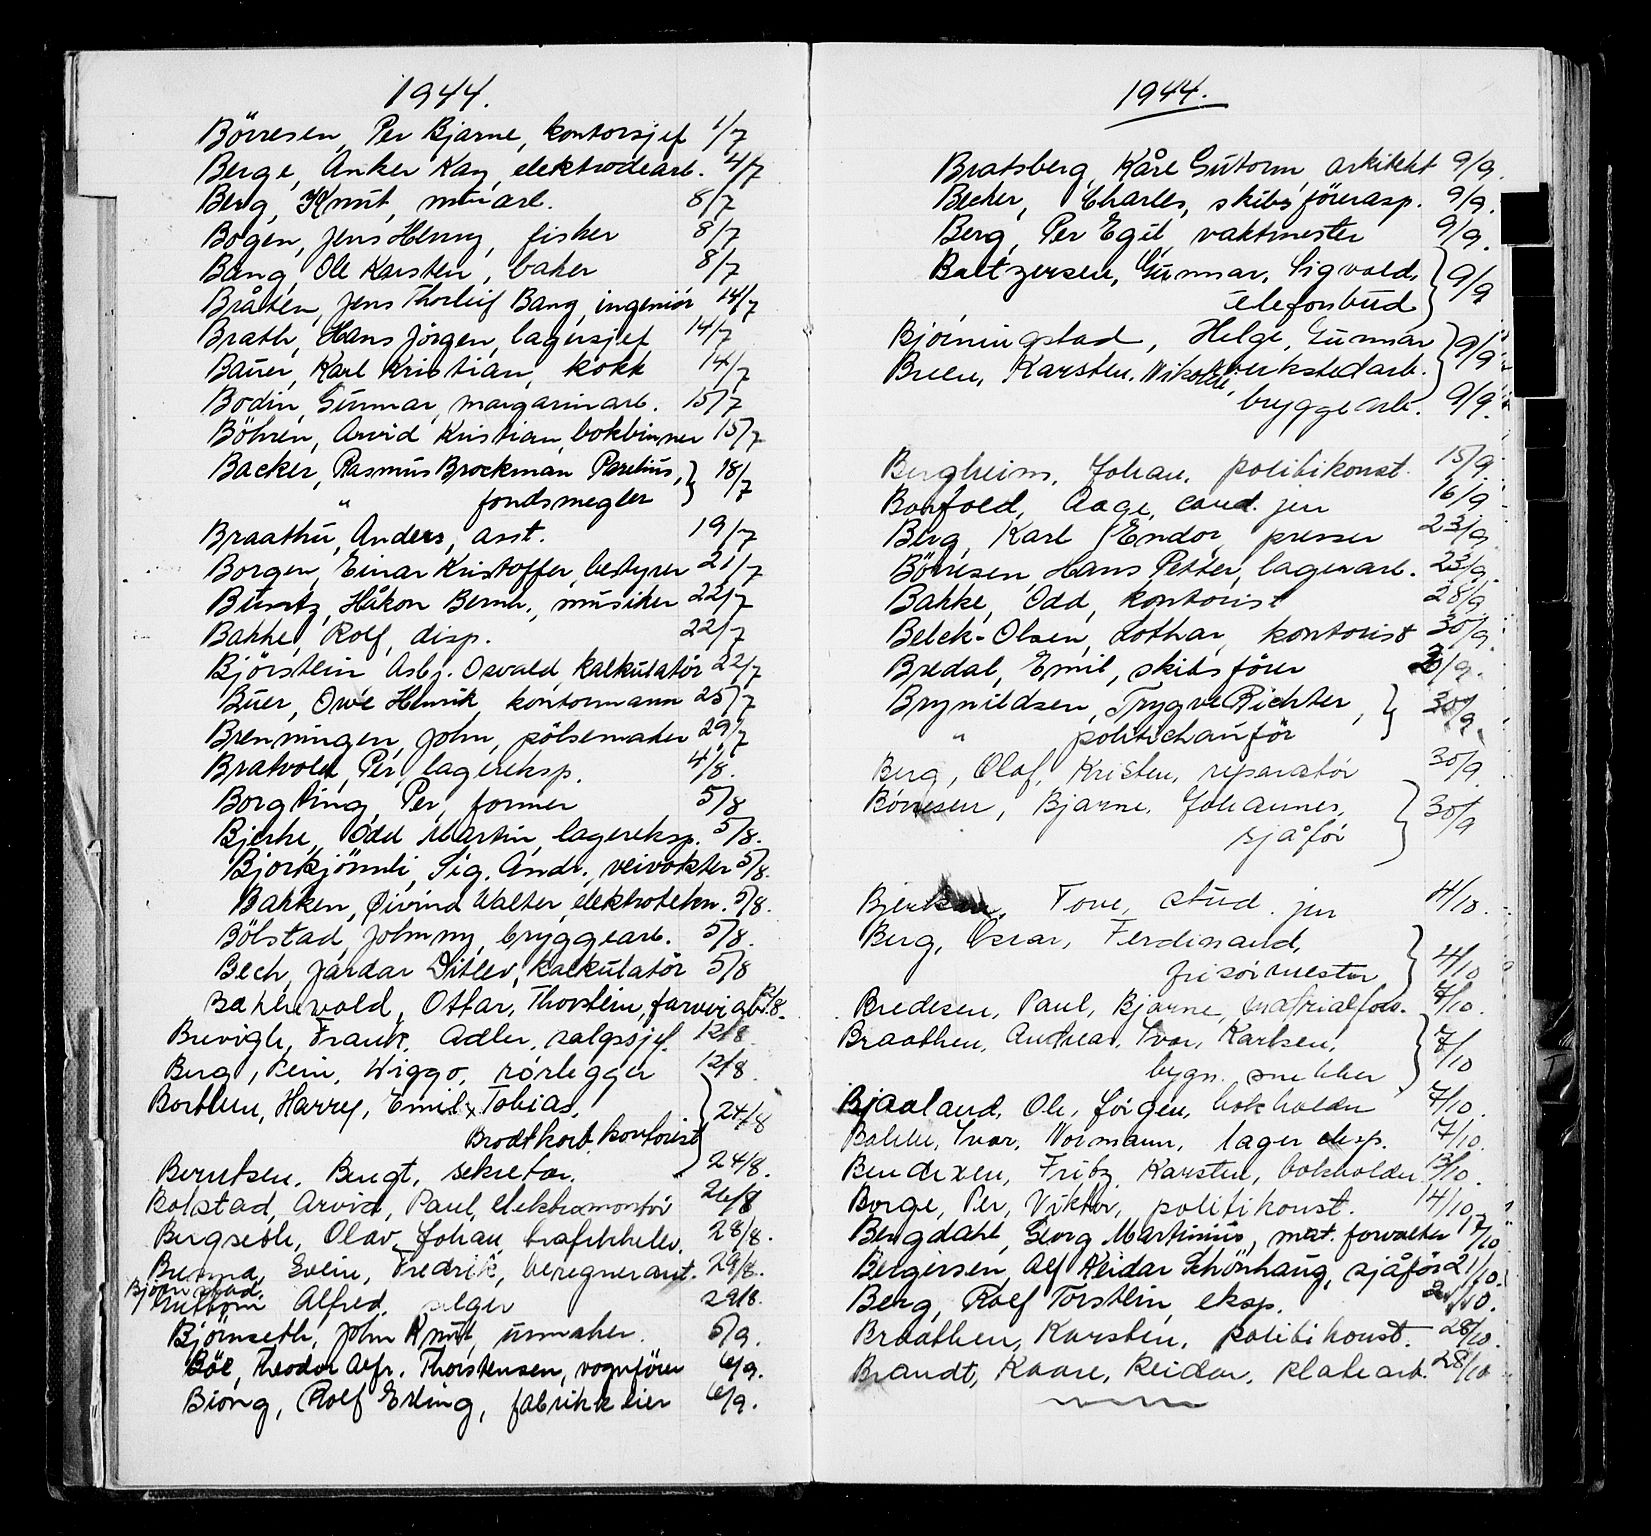 1944.
Börresen, Per Bjarne, kontorsjef 1/7
Berge, Anker Kay, elektrodearb. 4/7
Berg, Knut, murarb. 8/7
Bogen, Jens Henry, fisker 8/7
Bang, Ole Karsten, baker 8/7
Bråten, Jens Thorleif Bang, ingeniör 14/7
Brath, Hans Jörgen, lagersjef 14/7
Bauer, Karl Kristian, kokk 14/7
Bodin, Gunnar, margarinarb. 15/7
Böhren, Arvid Kristian, bokbinner 15/7
Backer, Rasmus Brockman Parelius, } 18/7
" fondsmegler
Braathu, Anders, asst. 19/7
Borgen, Einar Kristoffer, bestyrer 21/7
Buntz, Håkon Bernh., musiker 22/7
Bakke, Rolf, disp. 22/7
Björstein Asbj. Osvald, kalkulatör 22/7
Buer, Owe Henrik, kontormann 25/7
Brenningen, John, pölsemaker 29/7
Bratvold, Per, lagereksp. 4/8.
Borgting, Per, former 5/8
Bjerke, Odd Martin, lagereksp. 5/8.
Bjorkjönnli, Sig. Andr., veivokter 5/8.
Bakken, Øivind Walter, elektrotekn. 5/8.
Bölstad, Johnny, bryggearb. 5/8.
Bech, Jardar Ditlev, kalkulatör 5/8
Bakkevold, Ottar, Thorstein, farveriarb. /8.
Brevigh, Frank, Adler, salgssjef. 12/8
Berg, Rein, Wiggo, rörlegger 12/8.
Borthen, Harry, Emil, Tobias, } 24/8
Brodtkorb, kontorist
Berntsen, Bengt, sekretær. 24/8.
Bolstad, Arvid, Paul, elektromontör 26/8
Bergseth, Olav, Johan trafikkelev. 28/8.
Brenna, Svein, Fredrik, beregnerasst. 29/8.
Bjørnstad,
Guttorm Alfred, selger 29/8.
Björnseth, John Knut, urmaker. 5/9.
Böe, Theodor Alfr. Thorstensen, vognförer 6/9.
Biong, Rolf Erling, fabrikkeier 6/9.
1944.
Bratsberg, Kåre Gutorm, arkitekt 9/9.
Becker, Charles, skibsförerasp. 9/9.
Berg, Per Egil, vaktmester 9/9.
Baltzersen, Gunnar, Sigvald, } 9/9
telefonbud
Bjørningstad, Helge, Gunnar } 9/9
verkstedarb.
Breen, Karsten, Nikolai,
bryggearb. 9/9.
Bergheim, Johan, politikonst. 15/9.
Bonfold, Aage, cand. jur 16/9
Berg, Karl Endor, presser 23/9
Börresen, Hans Petter, lagerarb. 23/9.
Bakke, Odd, kontorist 28/9
Belck-Olsen, Lothar, kontorist 30/9.
Bredal, Emil, skibsförer /9.
Brynildsen, Trygve Richter, } 30/9
" politichauför
Berg, Olaf, Kristen, reparatör 30/9.
Børresen, Bjarne, Johannes, } 30/9
sjåfør
Tove, stud. jur 4/10.
Berg, Oscar, Ferdinand, } 4/10
frisørmester
Bredesen, Paul, Bjarne, materialforv. 7/10.
Braathen, Andreas, Ivar, Karlsen, } 7/10
bygn. snekker
Bjaaland, Ole, Jörgen, bokholder 7/10.
Bakke, Ivar, Normann, lagereksp. 7/10.
Bendixen, Fritz, Karsten, bokholder 13/10.
Borge, Per, Viktor, politikonst. 14/10
Bergdahl, Georg Martinius, mat. forvalter 17/10
Bergersen, Alf Reidar Schönhaug, sjåför 21/10.
Berg, Rolf Torstein, eksp. /10.
Braathen, Karsten, politikonst. 28/10.
Brandt, Kaare, Reidar, platearb. 28/10